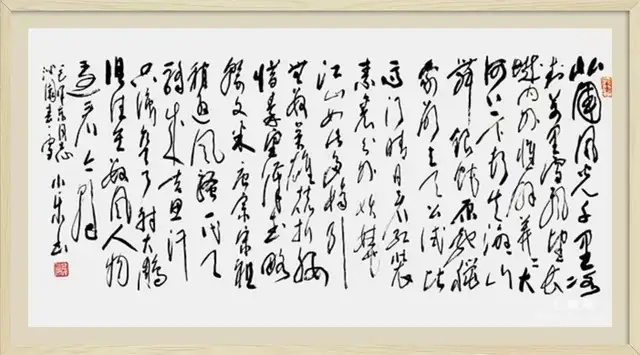 北国风光千里冰
封万里雪飘望长
城内外惟余莽々大
河上下顿失滔々山
舞银蛇原驰蜡
象欲与天公试比
高须晴日看红装
素裹分外妖娆
江山如此多娇引
无数英雄竞折腰
惜秦皇汉武略
输文采唐宗宋祖
稍逊风骚一代天
骄成吉思汗
只识弯弓射大雕
俱往矣数风流人物
还看今朝
毛泽东同志
沁园春·雪 小东书